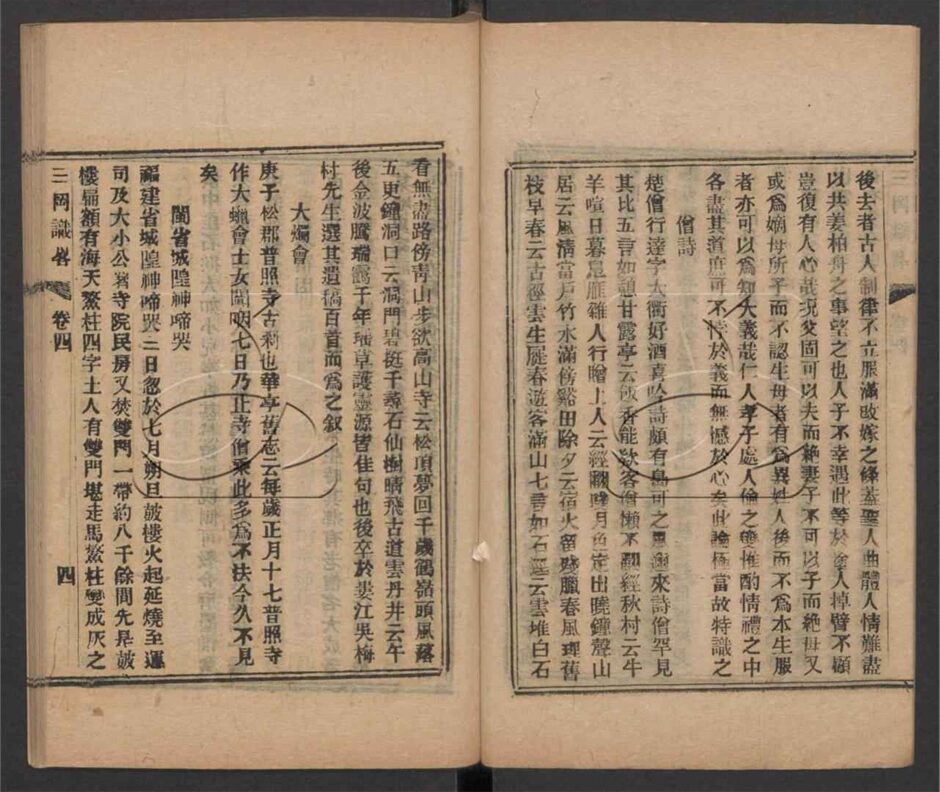 後去者古人制律不立服滿改嫁之條蓋聖人曲體人情難盡
以共姜柏舟之事望之也人子不幸遇此等於塗人掉臂不顧
豈復有人心哉況父固可以夫而絶妻子不可以子而絶母又
或爲嫡母所子而不認生母者有爲異姓人後而不爲本生服
者亦可以爲知大義哉仁人孝子處人倫之變惟酌情禮之中
各盡其道庶可不悖於義而無憾於心矣此論極當故特識之
僧詩
楚僧行達字大衢好酒喜吟詩頗有島可之風邇來詩僧罕見
其比五言如憩甘露亭云飯香能欵客僧懶不翻經秋村云牛
羊喧日暮鳧雁雜人行贈上人云經翻殘月色定出曉鐘聲山
居云風淸當戶竹水滿傍谿田除夕云宿火留殘臘春風理舊
枝早春云古徑雲生屐春遊客滿山七言如石逕云雲堆白石
看無盡路傍靑山步欲高山寺云松頂夢回千歲鶴嶺頭風落
五更鐘洞口云洞門碧挺千尋石仙樹晴飛古道雲丹井云午
後金波騰瑞靄千年瑤草護靈源皆佳句也後卒於婁江吳梅
村先生選其遺稿百首而爲之叙
大燭會
庚子松郡普照寺古刹也華亭舊志云每歲正月十七普照寺
作大蠟會士女闐咽七日乃止寺僧乘此多爲不法今久不見
矣
閩省城隍神啼哭
福建省城隍神啼哭三日忽於七月朔旦鼓樓火起延燒至運
司及大小公署寺院民房又焚雙門一帶約八千餘間先是鼓
樓扁額有海天鰲柱四字土人有雙門堪走馬鰲柱變成灰之
三岡識畧 卷四 四